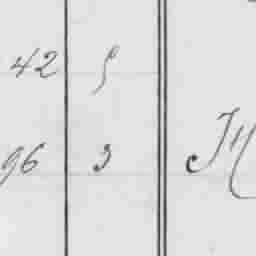 42 5
96 3